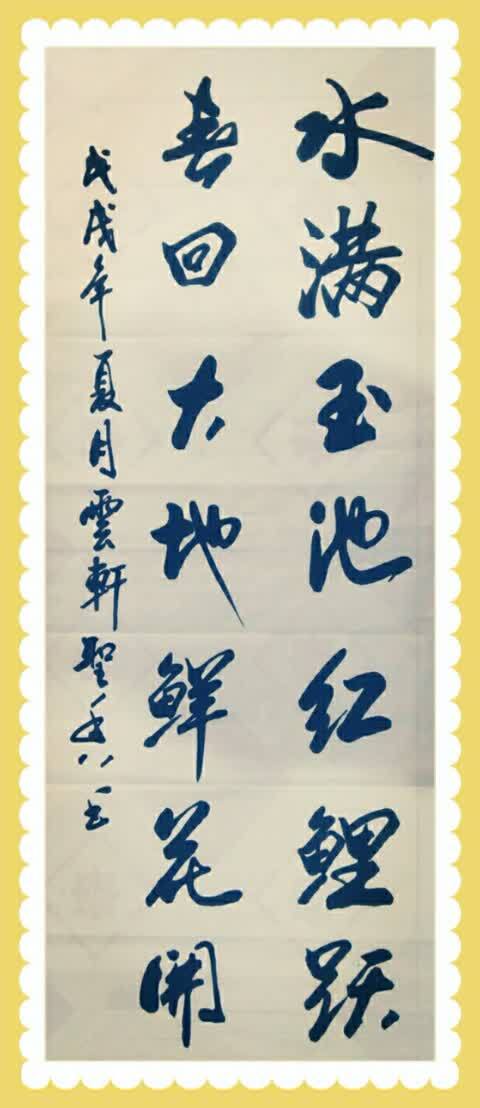 水满玉池红鲤跃
春回大地鲜花開
戊戌年夏月雲軒聖